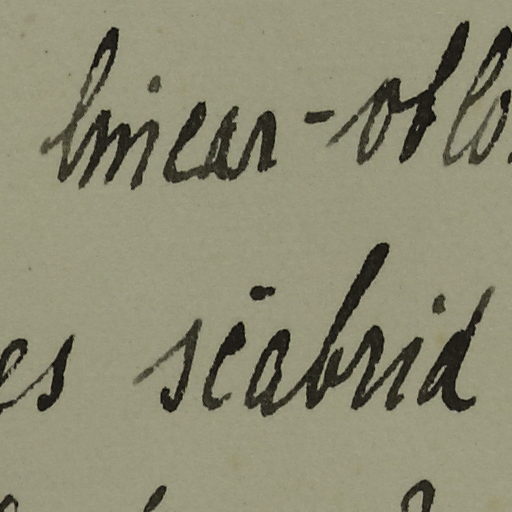 linear-oblo
es scabrid